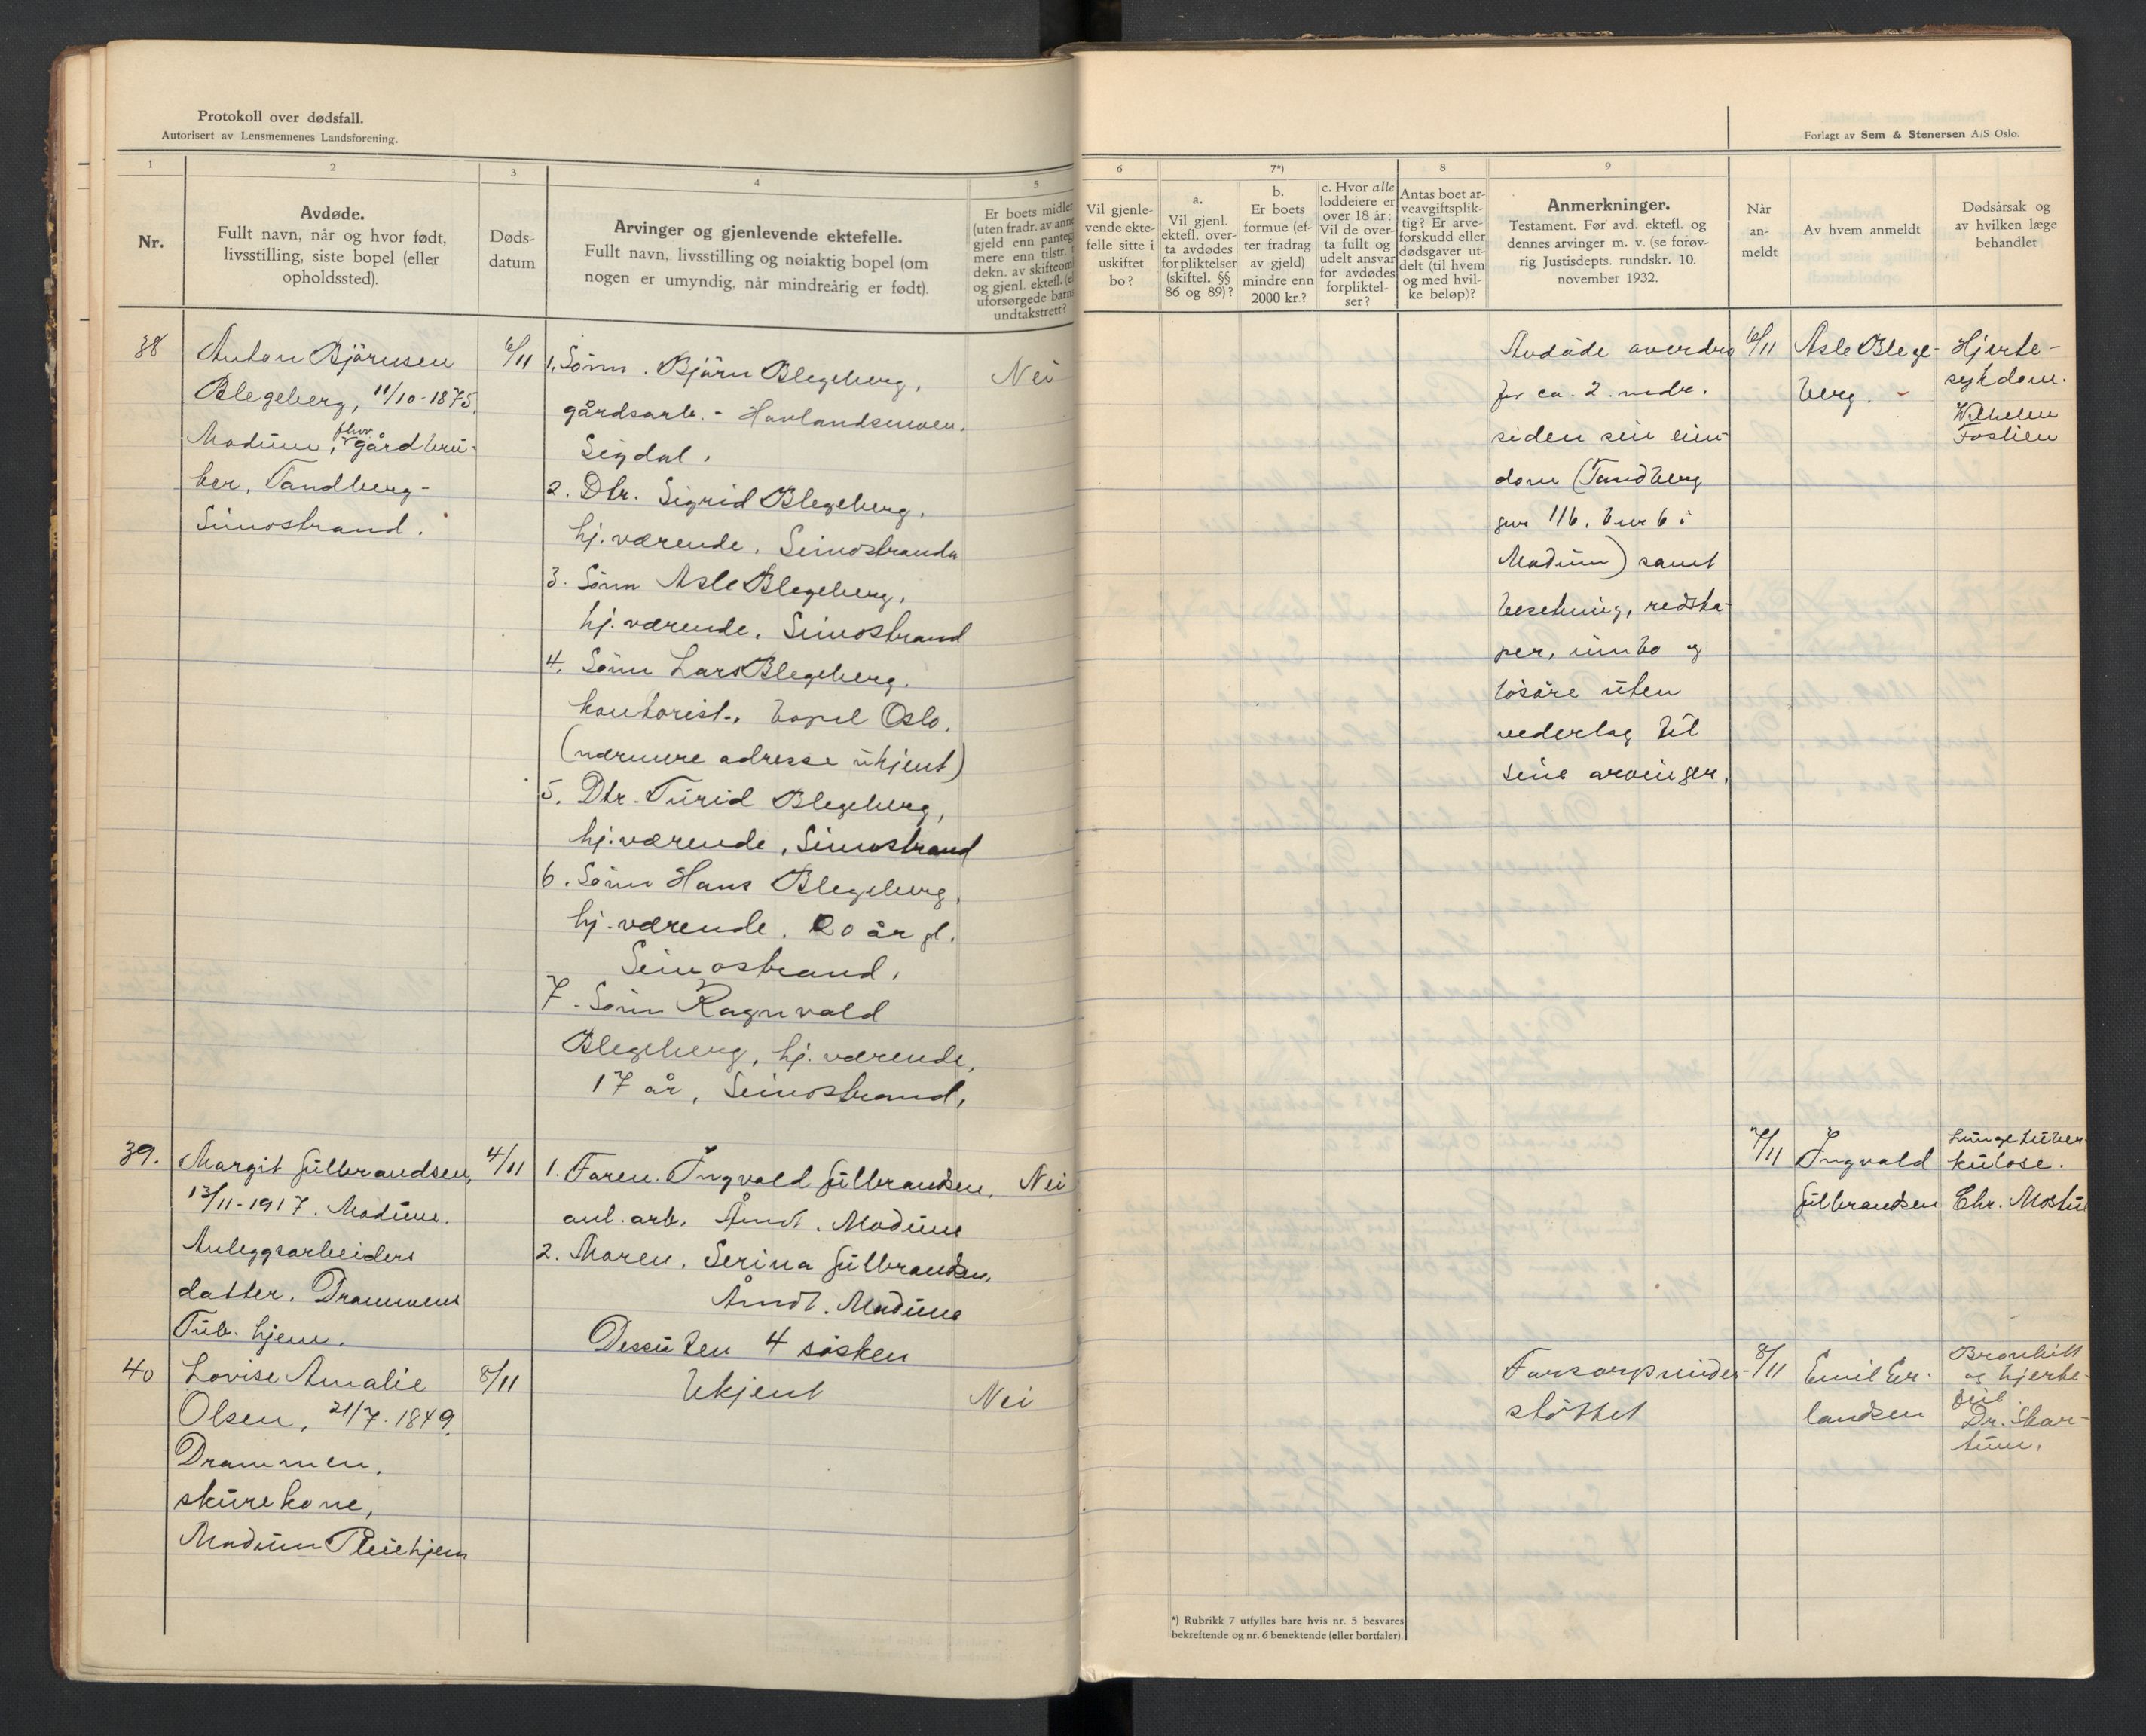 Protokoll over dødsfall.
Autorisert av Lensmennenes Landsforening.
Forlagt av Sem & Stenersen A/S Oslo.
1
2
3
4
5
6
7*)
8
9
Nr.
Avdøde.
Fullt navn, når og hvor født,
livsstilling, siste bopel (eller
opholdssted).
Døds-
datum
Arvinger og gjenlevende ektefelle.
Fullt navn, livsstilling og nøiaktig bopel (om
nogen er umyndig, når mindreårig er født).
Er boets midler
(uten fradr. av anne
gjeld enn panteg
mere enn tilstr.
dekn. av skifteom
og gjenl. ektefl. (el
uforsørgede barns
undtakstrett?
Vil gjenle-
vende ekte-
felle sitte i
uskiftet
bo?
a.
Vil gjenl.
ektefl. over-
ta avdødes
forpliktelser
(skiftel. §§
86 og 89)?
b.
Er boets
formue (ef-
ter fradrag
av gjeld)
mindre enn
2000 kr.?
c. Hvor alle
loddeiere er
over 18 år:
Vil de over-
ta fullt og
udelt ansvar
for avdødes
forpliktel-
ser?
Antas boet ar-
veavgiftsplik-
tig? Er arve-
forskudd eller
dødsgaver ut-
delt (til hvem
og med hvil-
ke beløp)?
Anmerkninger.
Testament. Før avd. ektefl. og
dennes arvinger m. v. (se forøv-
rig Justisdepts. rundskr. 10.
november 1932.
Når
an-
meldt
Av hvem anmeldt
Dødsårsak og
av hvilken læge
behandlet
38
Anton Björnsen
Blegeberg, 11/10-1875,
Modum, fhv. gårdbru-
ker, Tandberg-
Simostrand.
6/11
1, Sönn. Björn Blegeberg,
gårdsarb. - Havlandsmoen.
Sigdal.
2. Dtr. Sigrid Blegeberg,
hj. værende. Simostranda
3. Sönn Asle Blegeberg,
hj. værende. Simostrand
4. Sönn Lars Blegeberg.
kontorist., bopel Oslo.
(nærmere adresse ukjent)
5. Dtr. Turid Blegeberg,
hj. værende, Simostrand
6. Sönn Hans Blegeberg,
hj. værende. 20 år gl.
Simostrand.
7. Sönn Ragnvald
Blegeberg, hj. værende,
17 år, Simostrand,
Nei
Avdöde overdro
for ca. 2. mdr.
siden sin eien-
dom (Tandberg
gnr 116, bnr 6 i
Modum) samt
besetning, redska-
per, innbo og
lösöre uten
vederlag til
sine arvinger.
6/11
Asle Blege-
berg.
Hjerte-
sykdom.
Wilhelm
39.
Margit Gulbrandsen,
13/11-1917. Modum.
Anleggsarbeiders
datter. Drammens
Tub. hjem.
4/11
1. Faren. Ingvald Gulbrandsen,
anl. arb. Åmot. Modum
2. Moren. Serina Gulbrandsen,
Åmot. Modum
Dessuten 4 sösken
Nei
7/11
Ingvald
Gulbrandsen
Lungetuber-
kulose.
Chr. Mostue
40
Lovise Amalie
Olsen, 21/7-1849,
Drammen,
skurekone,
Modum Pleiehjem
8/11
Ukjent
Nei
Forsorgsunder-
stöttet
8/11
Emil Er-
landsen
Bronkitt
og hjerte-
feil.
Dr. Skar-
tum.
*) Rubrikk 7 utfylles bare hvis nr. 5 besvares
bekreftende og nr. 6 benektende (eller bortfaler)